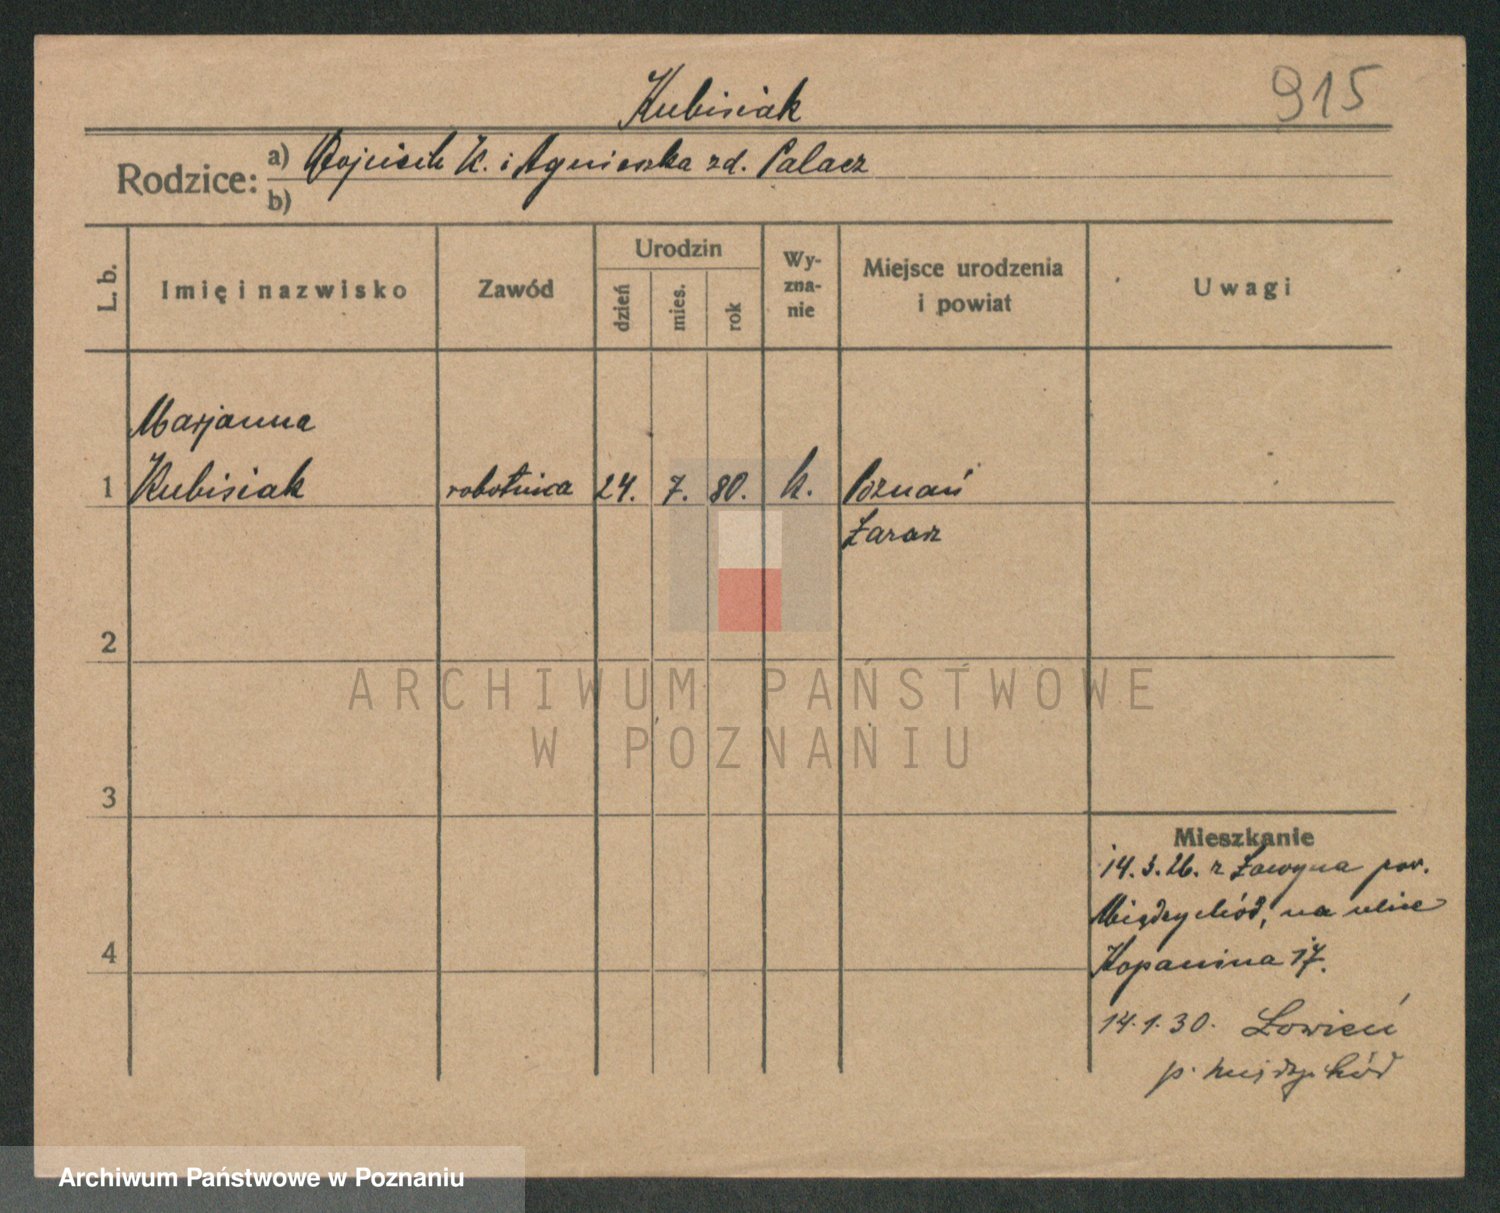 Kubisiak
915
Rodzice: a) Wojciech K. i Agnieszka zd. Palacz
b)
L. b.
Imię i nazwisko
Zawód
Urodzin
dzień
mies.
rok
Wy-
zna-
nie
Miejsce urodzenia
i powiat
Uwagi
Marjanna
1 Kubisiak robotnica 24. 7. 80. k. Poznań
Łazarz
2
ARCHIWUM PAŃSTWOWE
W POZNANIU
3
Mieszkanie
14.3.26. z pow.
Międzychód, na ulice
4
Kopanina 17.
14.1.30. Łowień
p. Międzychód
Archiwum Państwowe w Poznaniu